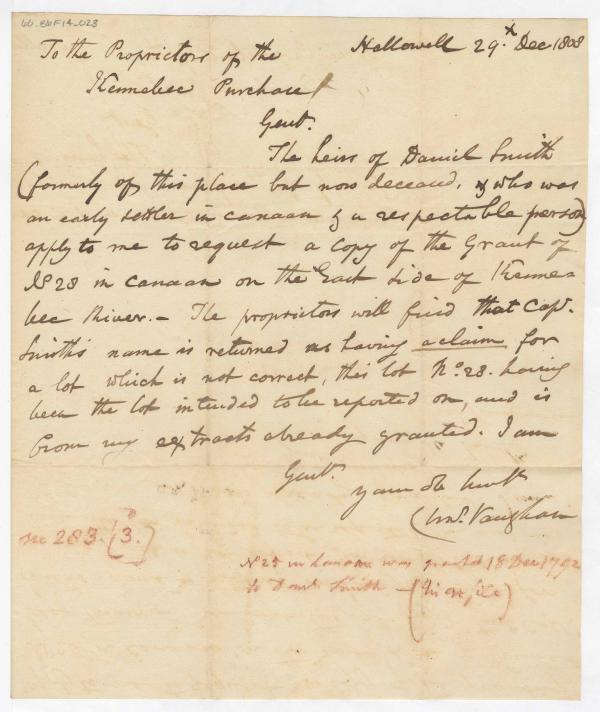 bb_B6F14_023
Hallowell 29.x Dec 1808
To the Proprietors of the
Kennebec Purchase
Gent.
The heirs of Daniel Smith
(formerly of this place but now deceased, & who was
an early settler in canaan & a respectable person)
apply to me to request a copy of the Grant of
No 28 in canaan on the East side of Kenne=
bec River. – The proprietors will find that Capt.
Smith's name is returned as having a claim for
a lot which is not correct, this lot No. 28. having
been the lot intended to be reported on, and is
from my extracts already granted. I am
Gent.
your ob servt
Chas. Vaughan
283. (3.)
No 25 in Canaan was granted 18 Dec 1792
to Danl. Smith – (in file)